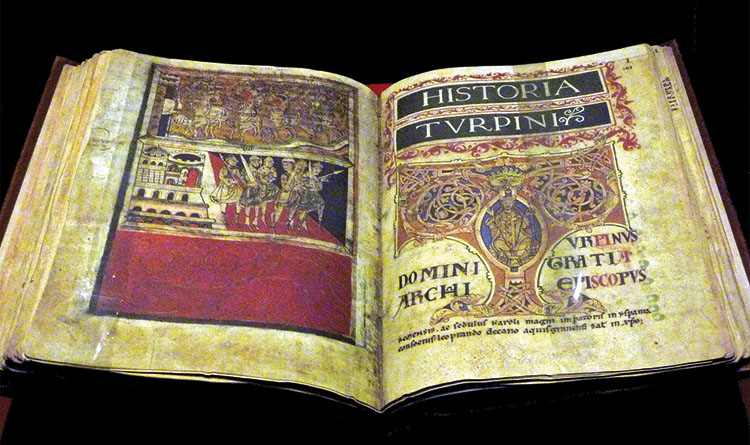 HISTORIA
TVRPINI
VRPINVS
DOMINI GRATIA
ARCHI EPISCOPUS
REMENSIS. ac sedulus karoli magni imperatoris in yspania
consocius leoprando decano aquisgranensi salt in xpo;